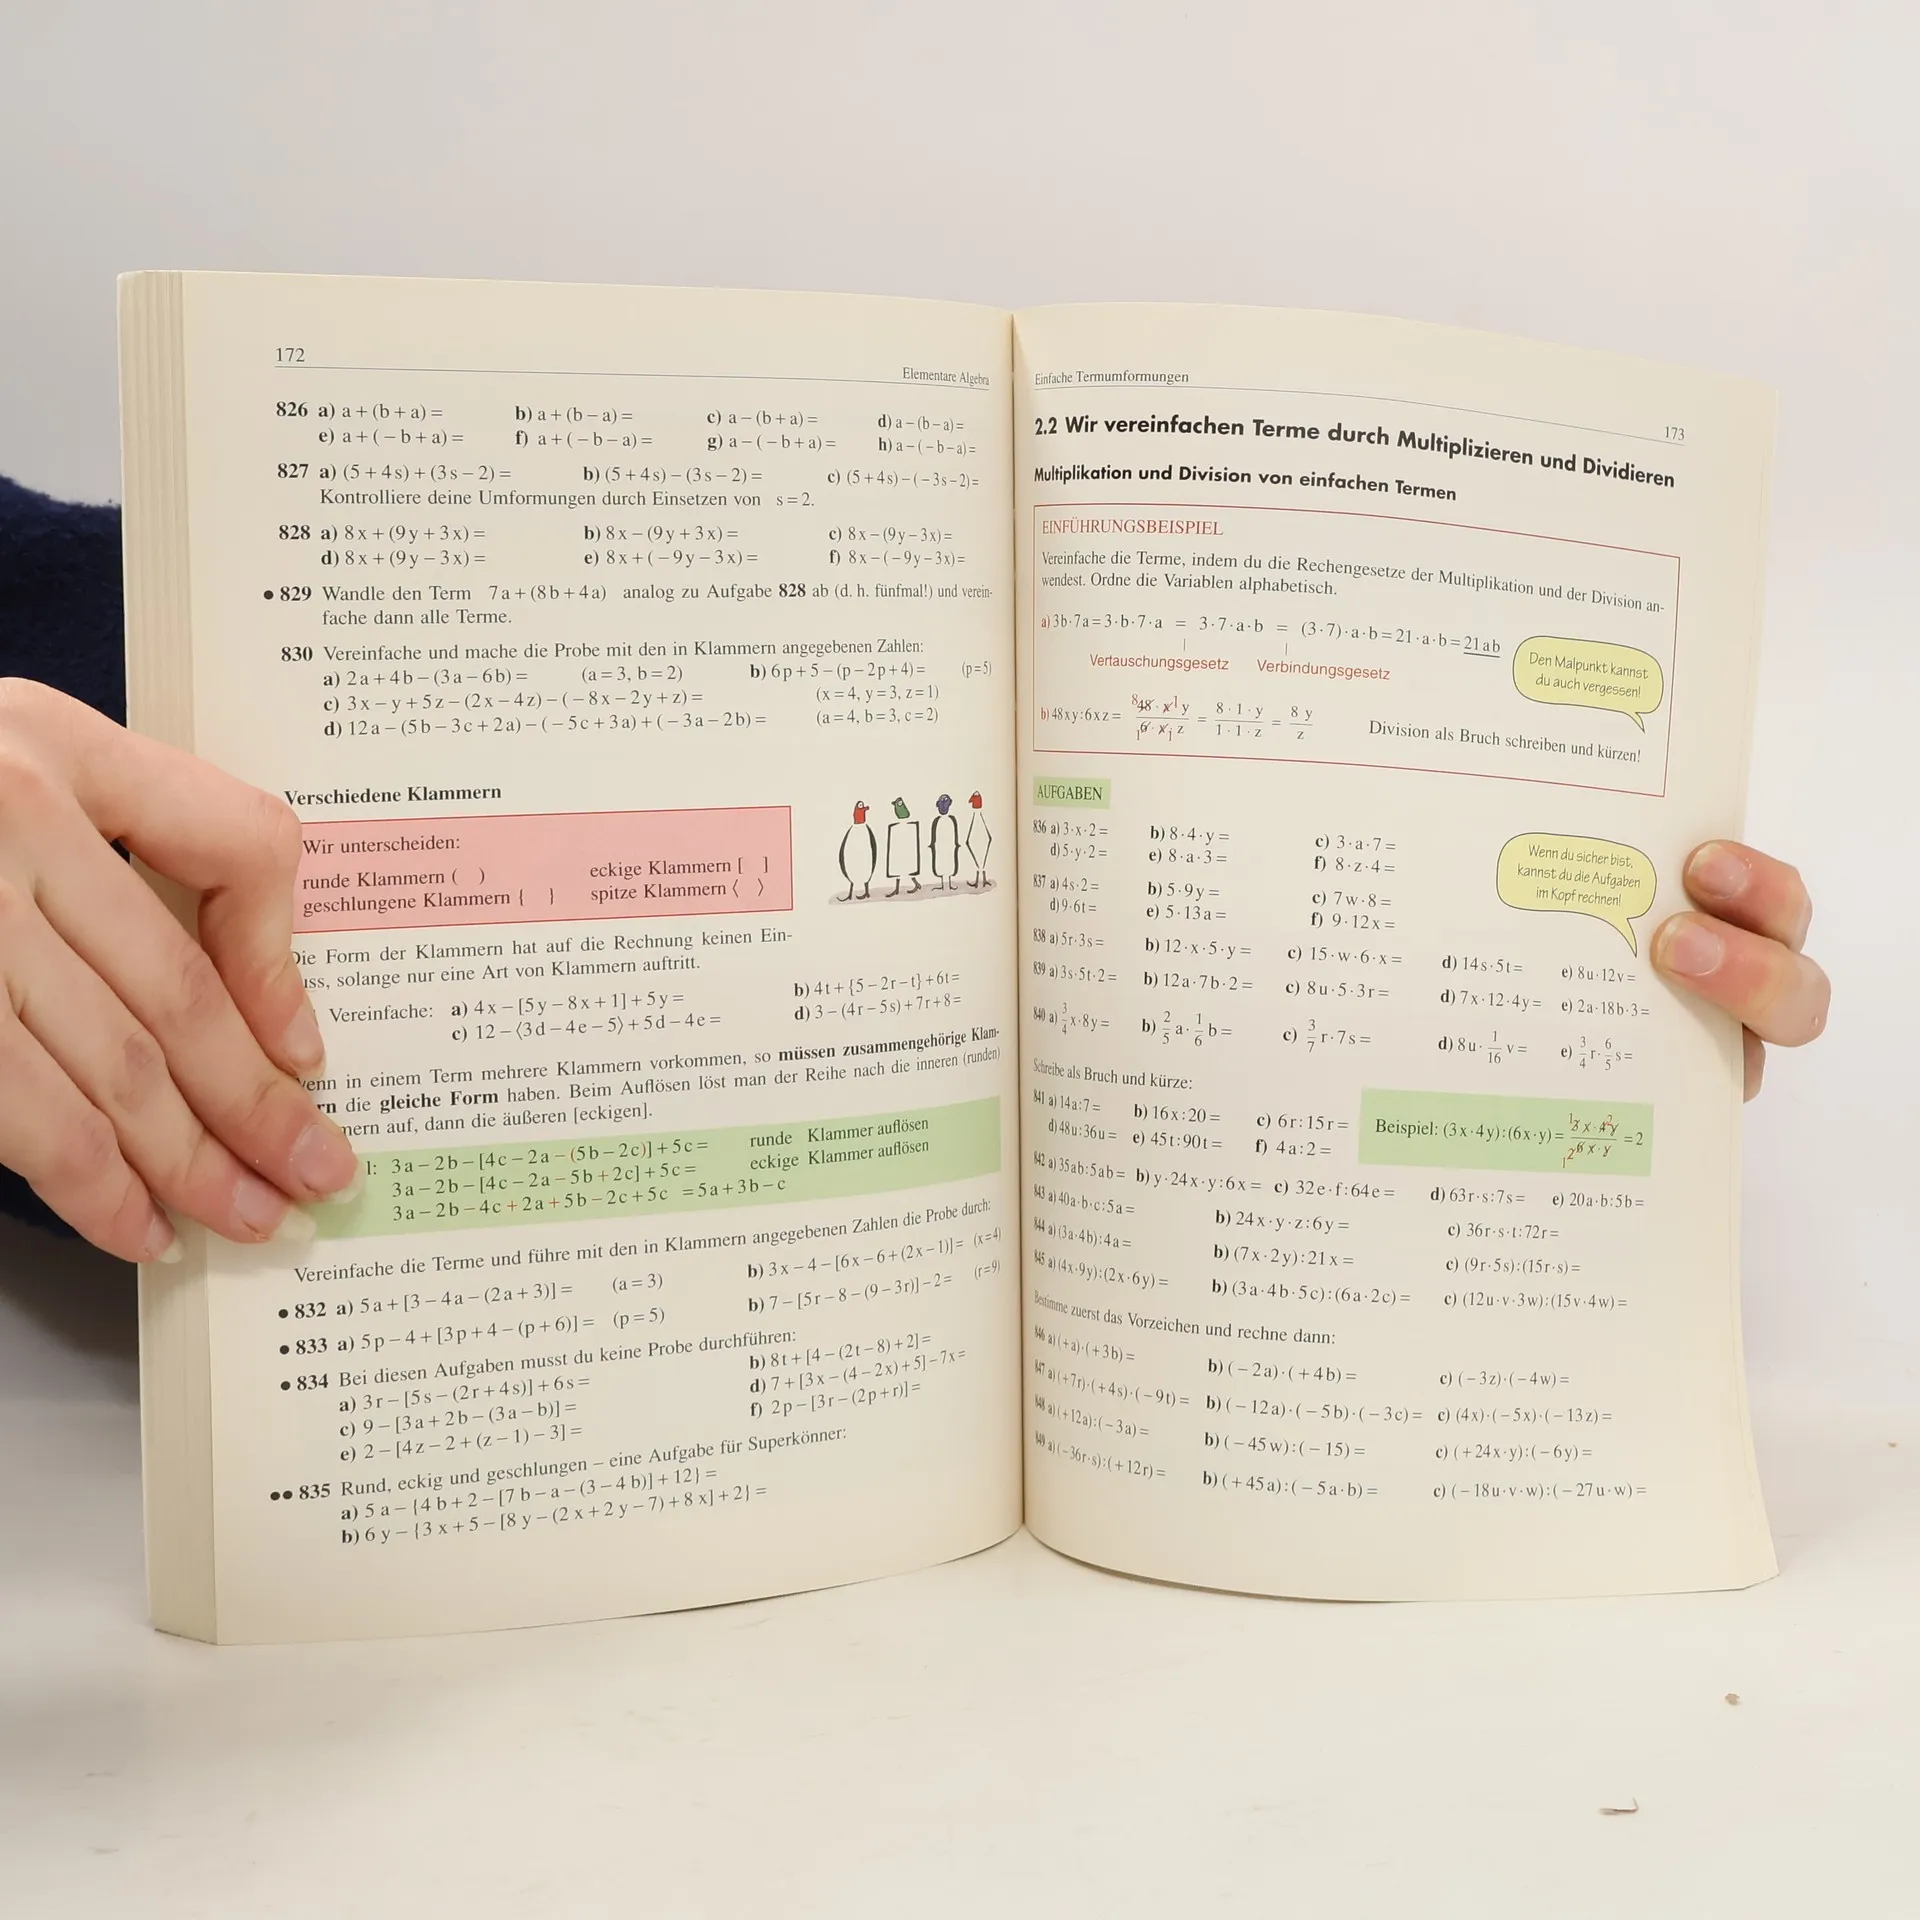 172
Elementare Algebra
826 a) a + (b + a) = b) a + (b − a) = c) a − (b + a) = d) a − (b − a) =
e) a + (− b + a) = f) a + (− b − a) = g) a − (− b + a) = h) a − (− b − a) =
827 a) (5 + 4s) + (3s − 2) = b) (5 + 4s) − (3s − 2) = c) (5 + 4s) − (− 3s − 2) =
Kontrolliere deine Umformungen durch Einsetzen von s = 2.
828 a) 8x + (9y + 3x) = b) 8x − (9y + 3x) = c) 8x − (9y − 3x) =
d) 8x + (9y − 3x) = e) 8x + (− 9y − 3x) = f) 8x − (− 9y − 3x) =
● 829 Wandle den Term 7a + (8b + 4a) analog zu Aufgabe 828 ab (d. h. fünfmal!) und verein-
fache dann alle Terme.
830 Vereinfache und mache die Probe mit den in Klammern angegebenen Zahlen:
a) 2a + 4b − (3a − 6b) = (a = 3, b = 2) b) 6p + 5 − (p − 2p + 4) = (p = 5)
c) 3x − y + 5z − (2x − 4z) − (− 8x − 2y + z) = (x = 4, y = 3, z = 1)
d) 12a − (5b − 3c + 2a) − (− 5c + 3a) + (− 3a − 2b) = (a = 4, b = 3, c = 2)
Verschiedene Klammern
Wir unterscheiden:
runde Klammern ( ) eckige Klammern [ ]
geschlungene Klammern { } spitze Klammern ⟨ ⟩
Die Form der Klammern hat auf die Rechnung keinen Ein-
uss, solange nur eine Art von Klammern auftritt.
Vereinfache: a) 4x − [5y − 8x + 1] + 5y = b) 4t + {5 − 2r − t} + 6t =
c) 12 − ⟨3d − 4e − 5⟩ + 5d − 4e = d) 3 − (4r − 5s) + 7r + 8 =
enn in einem Term mehrere Klammern vorkommen, so müssen zusammengehörige Klam-
rn die gleiche Form haben. Beim Auflösen löst man der Reihe nach die inneren (runden)
mern auf, dann die äußeren [eckigen].
l: 3a − 2b − [4c − 2a − (5b − 2c)] + 5c = runde Klammer auflösen
3a − 2b − [4c − 2a − 5b + 2c] + 5c = eckige Klammer auflösen
3a − 2b − 4c + 2a + 5b − 2c + 5c = 5a + 3b − c
Vereinfache die Terme und führe mit den in Klammern angegebenen Zahlen die Probe durch:
● 832 a) 5a + [3 − 4a − (2a + 3)] = (a = 3) b) 3x − 4 − [6x − 6 + (2x − 1)] = (x = 4)
● 833 a) 5p − 4 + [3p + 4 − (p + 6)] = (p = 5) b) 7 − [5r − 8 − (9 − 3r)] − 2 = (r = 9)
● 834 Bei diesen Aufgaben musst du keine Probe durchführen:
a) 3r − [5s − (2r + 4s)] + 6s = b) 8t + [4 − (2t − 8) + 2] =
c) 9 − [3a + 2b − (3a − b)] = d) 7 + [3x − (4 − 2x) + 5] − 7x =
e) 2 − [4z − 2 + (z − 1) − 3] = f) 2p − [3r − (2p + r)] =
●● 835 Rund, eckig und geschlungen – eine Aufgabe für Superkönner:
a) 5a − {4b + 2 − [7b − a − (3 − 4b)] + 12} =
b) 6y − {3x + 5 − [8y − (2x + 2y − 7) + 8x] + 2} =
Einfache Termumformungen
173
2.2 Wir vereinfachen Terme durch Multiplizieren und Dividieren
Multiplikation und Division von einfachen Termen
EINFÜHRUNGSBEISPIEL
Vereinfache die Terme, indem du die Rechengesetze der Multiplikation und der Division an-
wendest. Ordne die Variablen alphabetisch.
a) 3b · 7a = 3 · b · 7 · a = 3 · 7 · a · b = (3 · 7) · a · b = 21 · a · b = 21ab
Vertauschungsgesetz Verbindungsgesetz
Den Malpunkt kannst
du auch vergessen!
b) 48xy : 6xz = 8 48 · x 1 y / 1 6 · x 1 z = 8 · 1 · y / 1 · 1 · z = 8y / z
Division als Bruch schreiben und kürzen!
AUFGABEN
836 a) 3 · x · 2 = b) 8 · 4 · y = c) 3 · a · 7 =
d) 5 · y · 2 = e) 8 · a · 3 = f) 8 · z · 4 =
Wenn du sicher bist,
kannst du die Aufgaben
im Kopf rechnen!
837 a) 4s · 2 = b) 5 · 9y = c) 7w · 8 =
d) 9 · 6t = e) 5 · 13a = f) 9 · 12x =
838 a) 5r · 3s = b) 12 · x · 5 · y = c) 15 · w · 6 · x = d) 14s · 5t = e) 8u · 12v =
839 a) 3s · 5t · 2 = b) 12a · 7b · 2 = c) 8u · 5 · 3r = d) 7x · 12 · 4y = e) 2a · 18b · 3 =
840 a) 3/4 x · 8y = b) 2/5 a · 1/6 b = c) 3/7 r · 7s = d) 8u · 1/16 v = e) 3/4 r · 6/5 s =
Schreibe als Bruch und kürze:
841 a) 14a : 7 = b) 16x : 20 = c) 6r : 15r =
d) 48u : 36u = e) 45t : 90t = f) 4a : 2 =
Beispiel: (3x · 4y) : (6x · y) = 1 3 x · 4 2 y / 1 2 6 x · y = 2
842 a) 35ab : 5ab = b) y · 24x · y : 6x = c) 32e · f : 64e = d) 63r · s : 7s = e) 20a · b : 5b =
843 a) 40a · b · c : 5a = b) 24x · y · z : 6y = c) 36r · s · t : 72r =
844 a) (3a · 4b) : 4a = b) (7x · 2y) : 21x = c) (9r · 5s) : (15r · s) =
845 a) (4x · 9y) : (2x · 6y) = b) (3a · 4b · 5c) : (6a · 2c) = c) (12u · v · 3w) : (15v · 4w) =
Bestimme zuerst das Vorzeichen und rechne dann:
846 a) (+ a) · (+ 3b) = b) (− 2a) · (+ 4b) = c) (− 3z) · (− 4w) =
847 a) (+ 7r) · (+ 4s) · (− 9t) = b) (− 12a) · (− 5b) · (− 3c) = c) (4x) · (− 5x) · (− 13z) =
848 a) (+ 12a) : (− 3a) = b) (− 45w) : (− 15) = c) (+ 24x · y) : (− 6y) =
849 a) (− 36r · s) : (+ 12r) = b) (+ 45a) : (− 5a · b) = c) (− 18u · v · w) : (− 27u · w) =